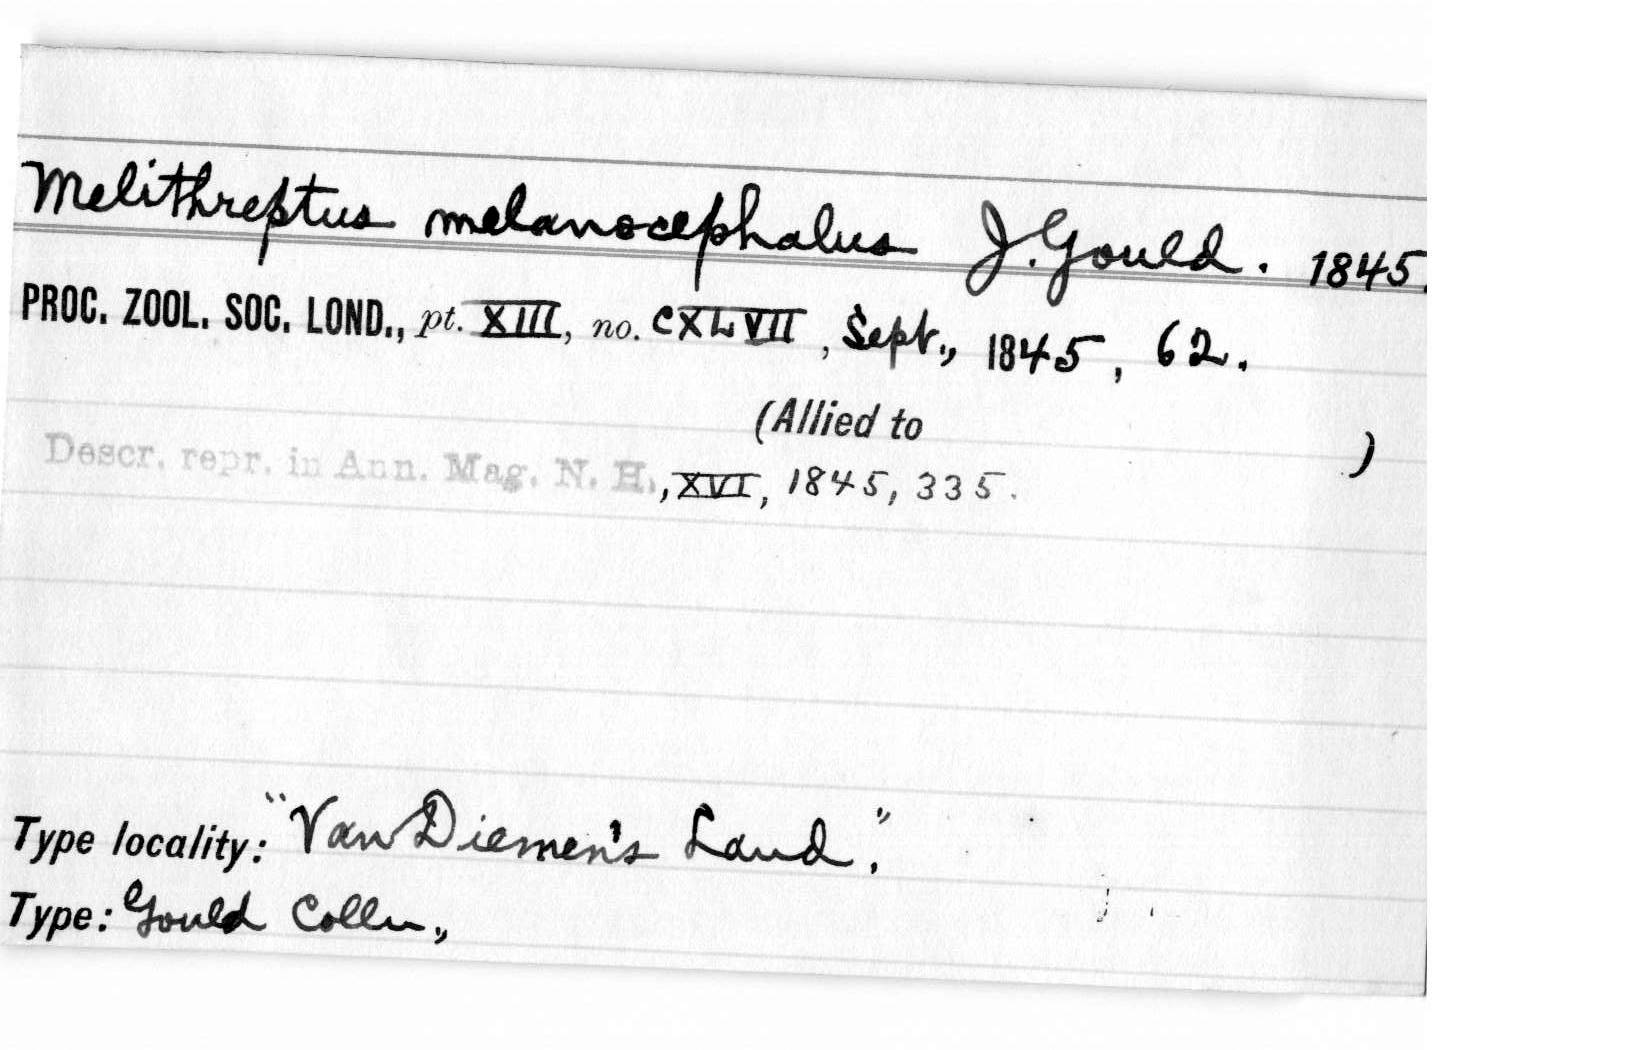 Melithreptus melanocephalus J. Gould. 1845.
PROC. ZOOL. SOC. LOND., pt. XIII, no. CXLVII, Sept., 1845, 62.
(Allied to )
Descr. repr. in Ann. Mag. N. H., XVI, 1845, 335.
Type locality: "Van Diemen's Land,"
Type: Gould Colln.,